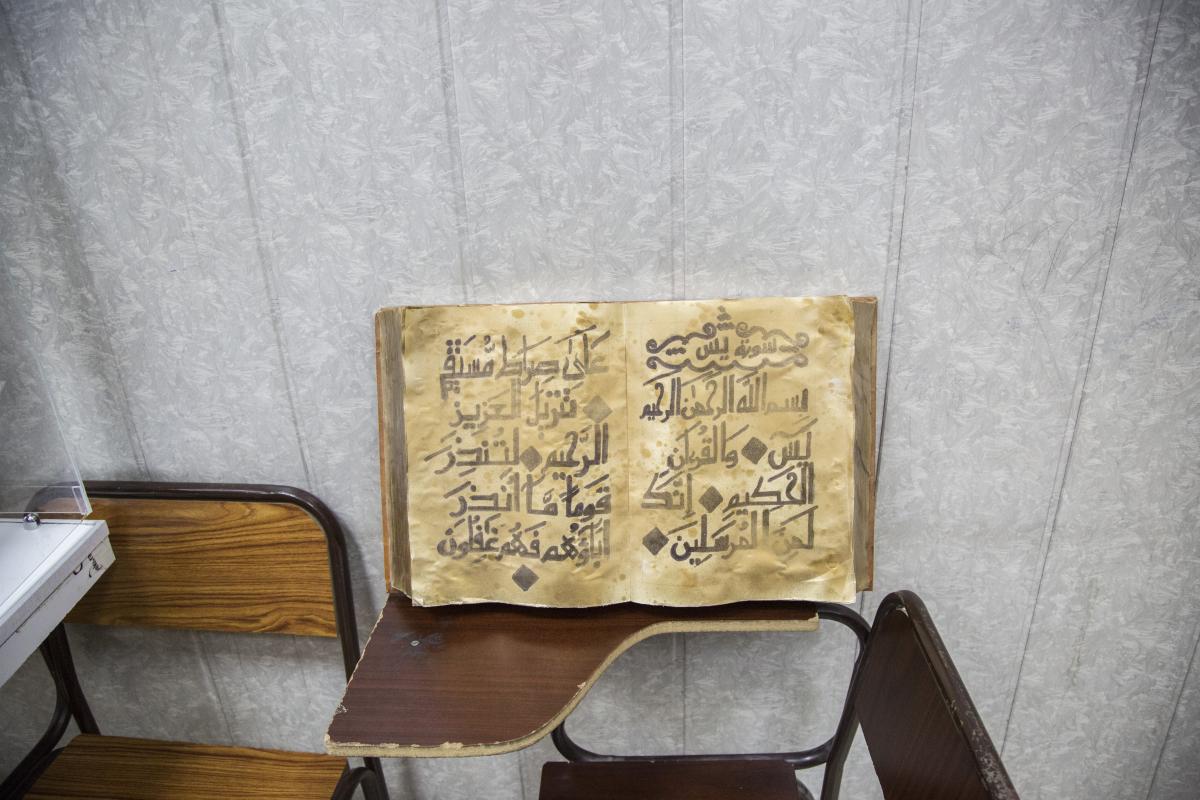 سورة يس
بسم الله الرحمن الرحيم
يس ◆ والقرآن
الحكيم ◆ إنك
لمن المرسلين ◆
على صراط مستقيم
◆ تنزيل العزيز
الرحيم ◆ لتنذر
قوما ما أنذر
آباؤهم فهم غفلون
◆